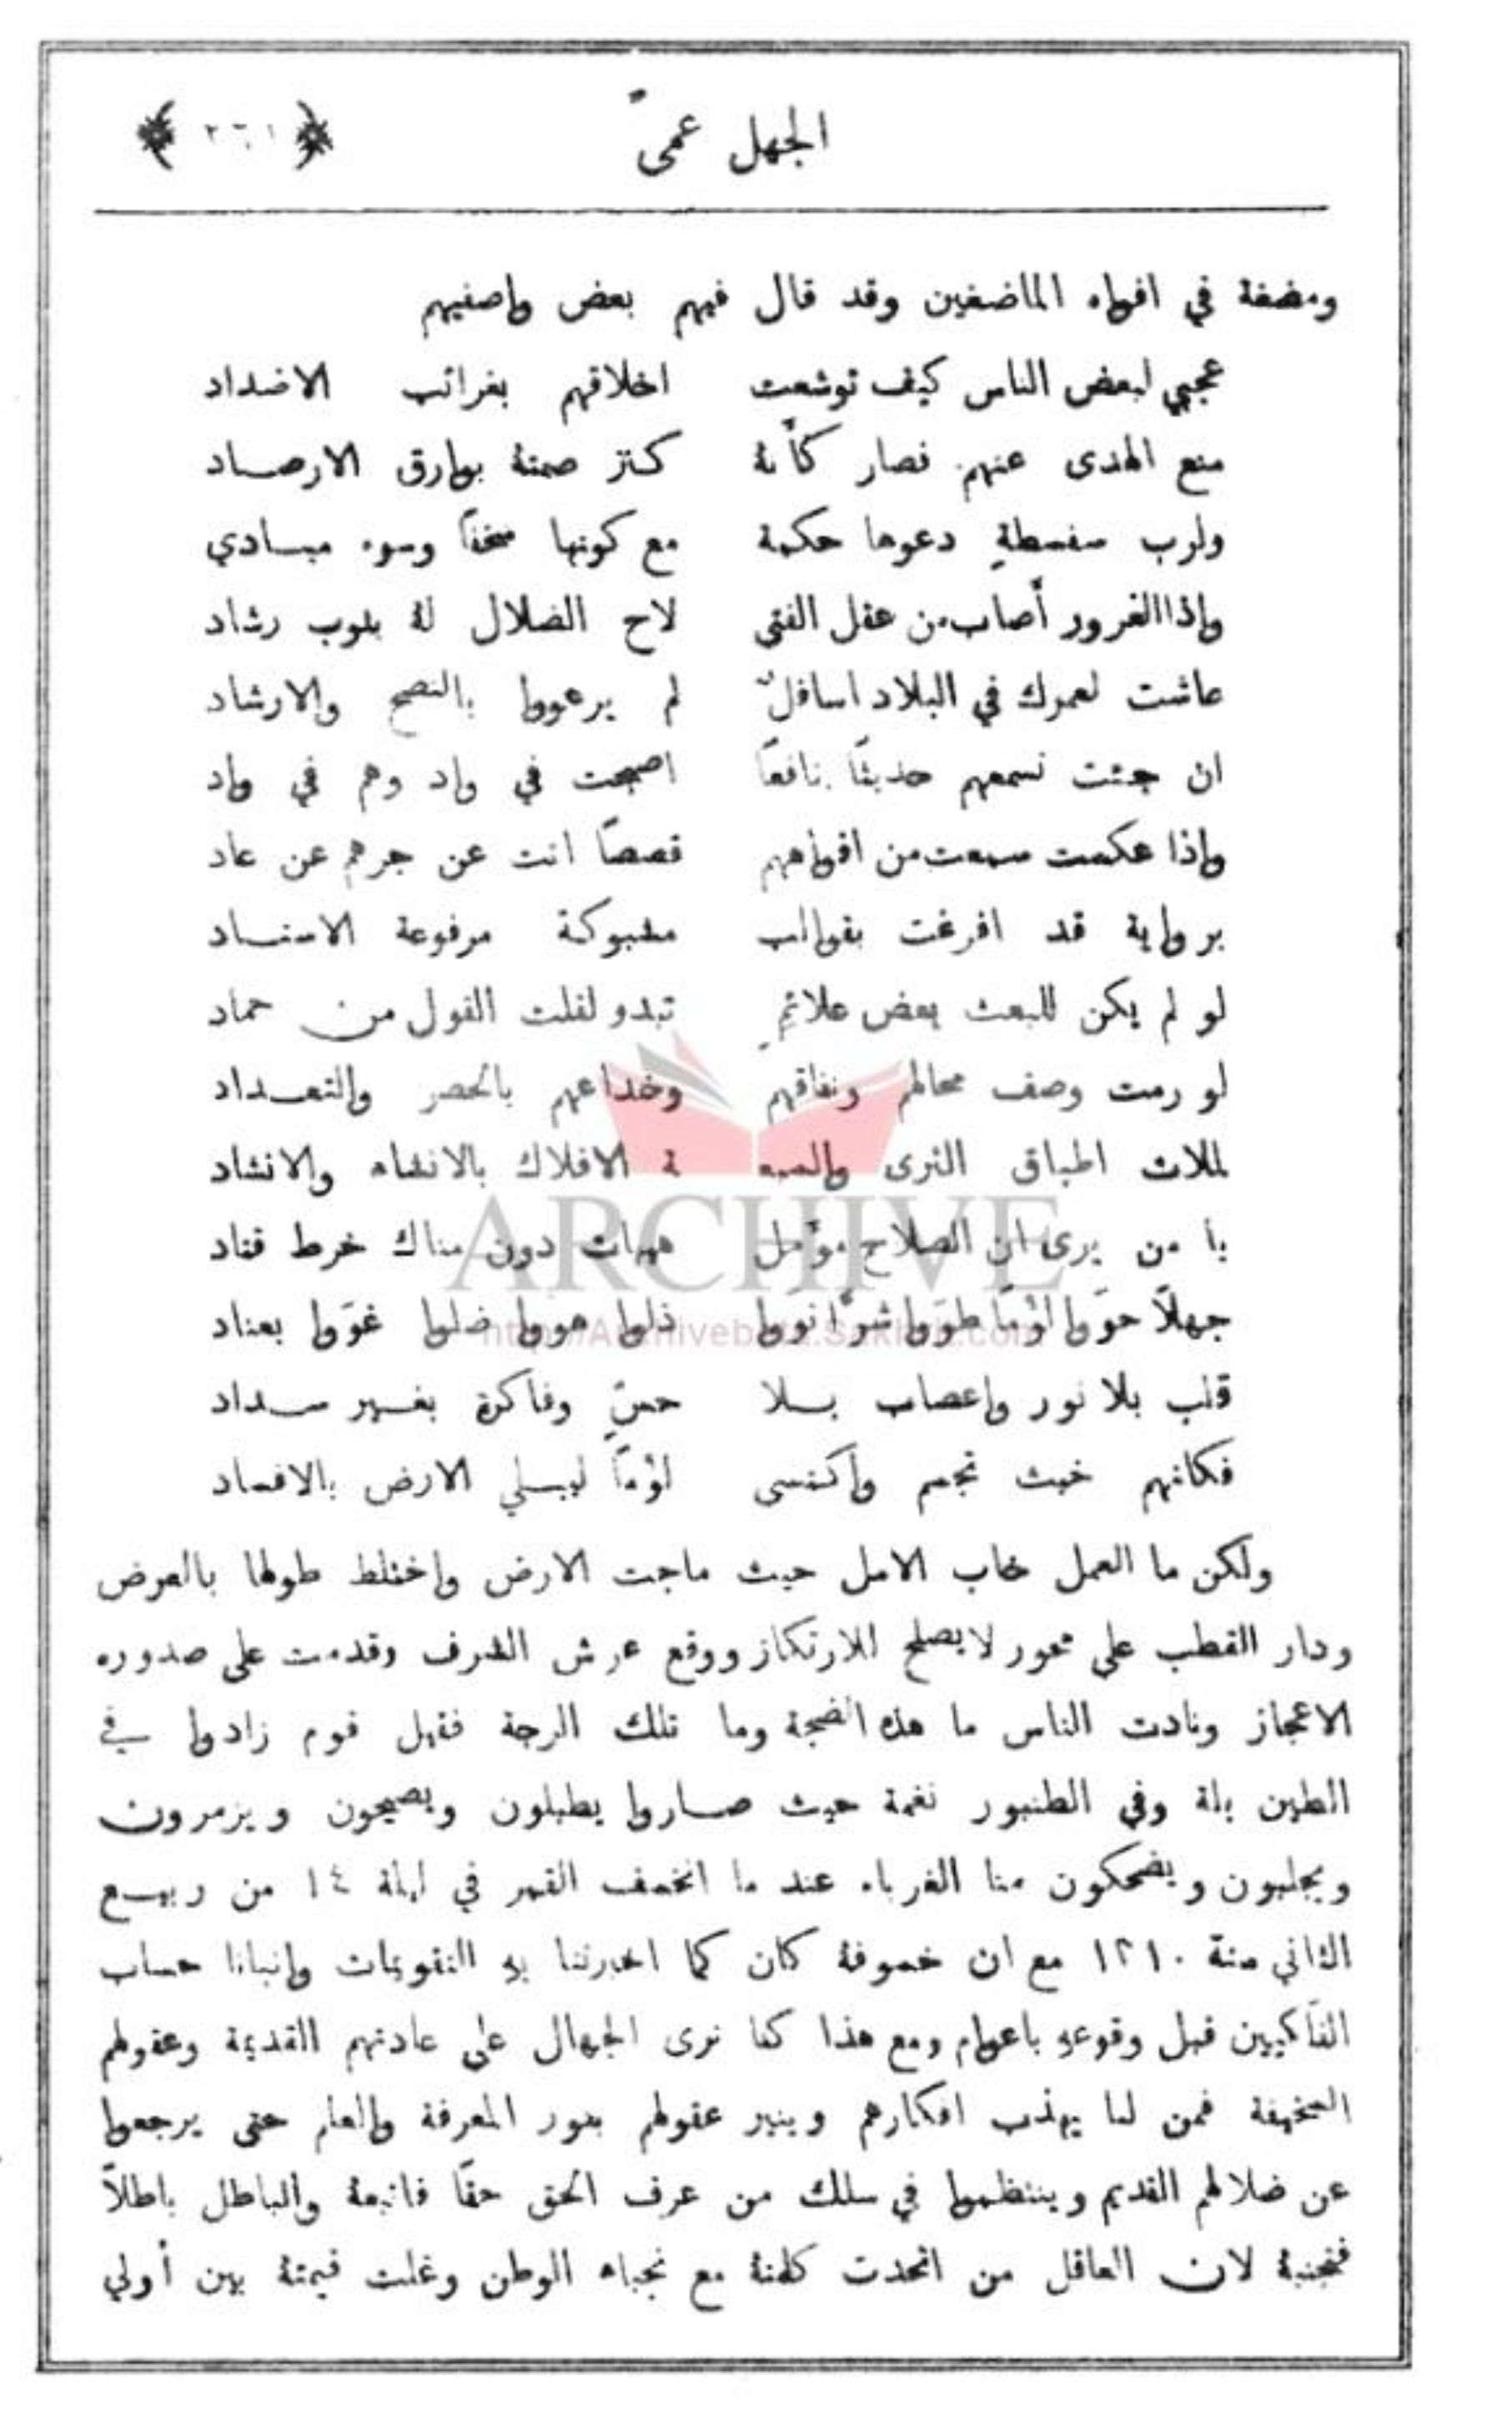 الجهل عمىً ﴿٢٦١﴾
ومضغة في افواه الماضغين وقد قال فيهم بعض واصفيهم
عجبي لبعض الناس كيف توشعت اخلاقهم بغرائب الاضداد
منع الهدى عنهم فصار كأنهُ كنز صمتهُ بوارق الارصاد
ولرب سفسطةٍ دعوها حكمة مع كونها سخفًا وسوء مبادي
واذا الغرور أصاب من عقل الفتى لاح الضلال لهُ بثوب رشاد
عاشت لعمرك في البلاد اسافلٌ لم يرعووا بالنصح والارشاد
ان جئت تسمعهم حديثًا نافعًا اصبحت في واد وهم في واد
واذا عكست سمعت من افواههم قصصًا اتت عن جرهم عن عاد
برواية قد افرغت بقوالب مسبوكة مرفوعة الاسناد
لو لم يكن للبعث بعض علائمٍ تبدو لقلت القول من حماد
لو رمت وصف محالهم ونفاقهم وخداعهم بالحصر والتعداد
لملات اطباق الثرى والسبعة الافلاك بالانشاء والانشاد
يا من يرى ان الصلاح مؤمل هيهات دون مناك خرط قتاد
جهلاً حوَوا لؤمًا طوَوا شرًّا نوَوا ذلوا هووا ضلوا غوَوا بعناد
قلب بلا نور واعصاب بلا حسٍّ وفاكرة بغير سداد
فكانهم خبث تجسم واكتسى لؤمًا ليبلي الارض بالافساد
ولكن ما العمل خاب الامل حيث ماجت الارض واختلط طولها بالعرض
ودار القطب على محور لا يصلح للارتكاز ووقع عرش الشرف وقدمت على صدوره
الاعجاز ونادت الناس ما هذه الضجة وما تلك الرجة فقيل قوم زادوا في
الطين بلة وفي الطنبور نغمة حيث صاروا يطبلون ويصيحون ويزمرون
ويجلبون ويضحكون منا الغرباء عند ما انخسف القمر في ليلة ١٤ من ربيع
الثاني سنة ١٣١٠ مع ان خسوفهُ كان كما اخبرتنا بهِ التقويمات وانبانا حساب
الفلكيين قبل وقوعهِ باعوام ومع هذا كنا نرى الجهال على عادتهم القديمة وعقولهم
السخيفة فمن لنا يهذب افكارهم وينير عقولهم بنور المعرفة والعلم حتى يرجعوا
عن ضلالهم القديم وينتظموا في سلك من عرف الحق حقًا فاتبعهُ والباطل باطلاً
فتجنبهُ لان العاقل من اتحدت كلمتهُ مع نجباء الوطن وغلت قيمتهُ بين أولي
ARCHIVE
http://Archivebeta.Sakhrit.com